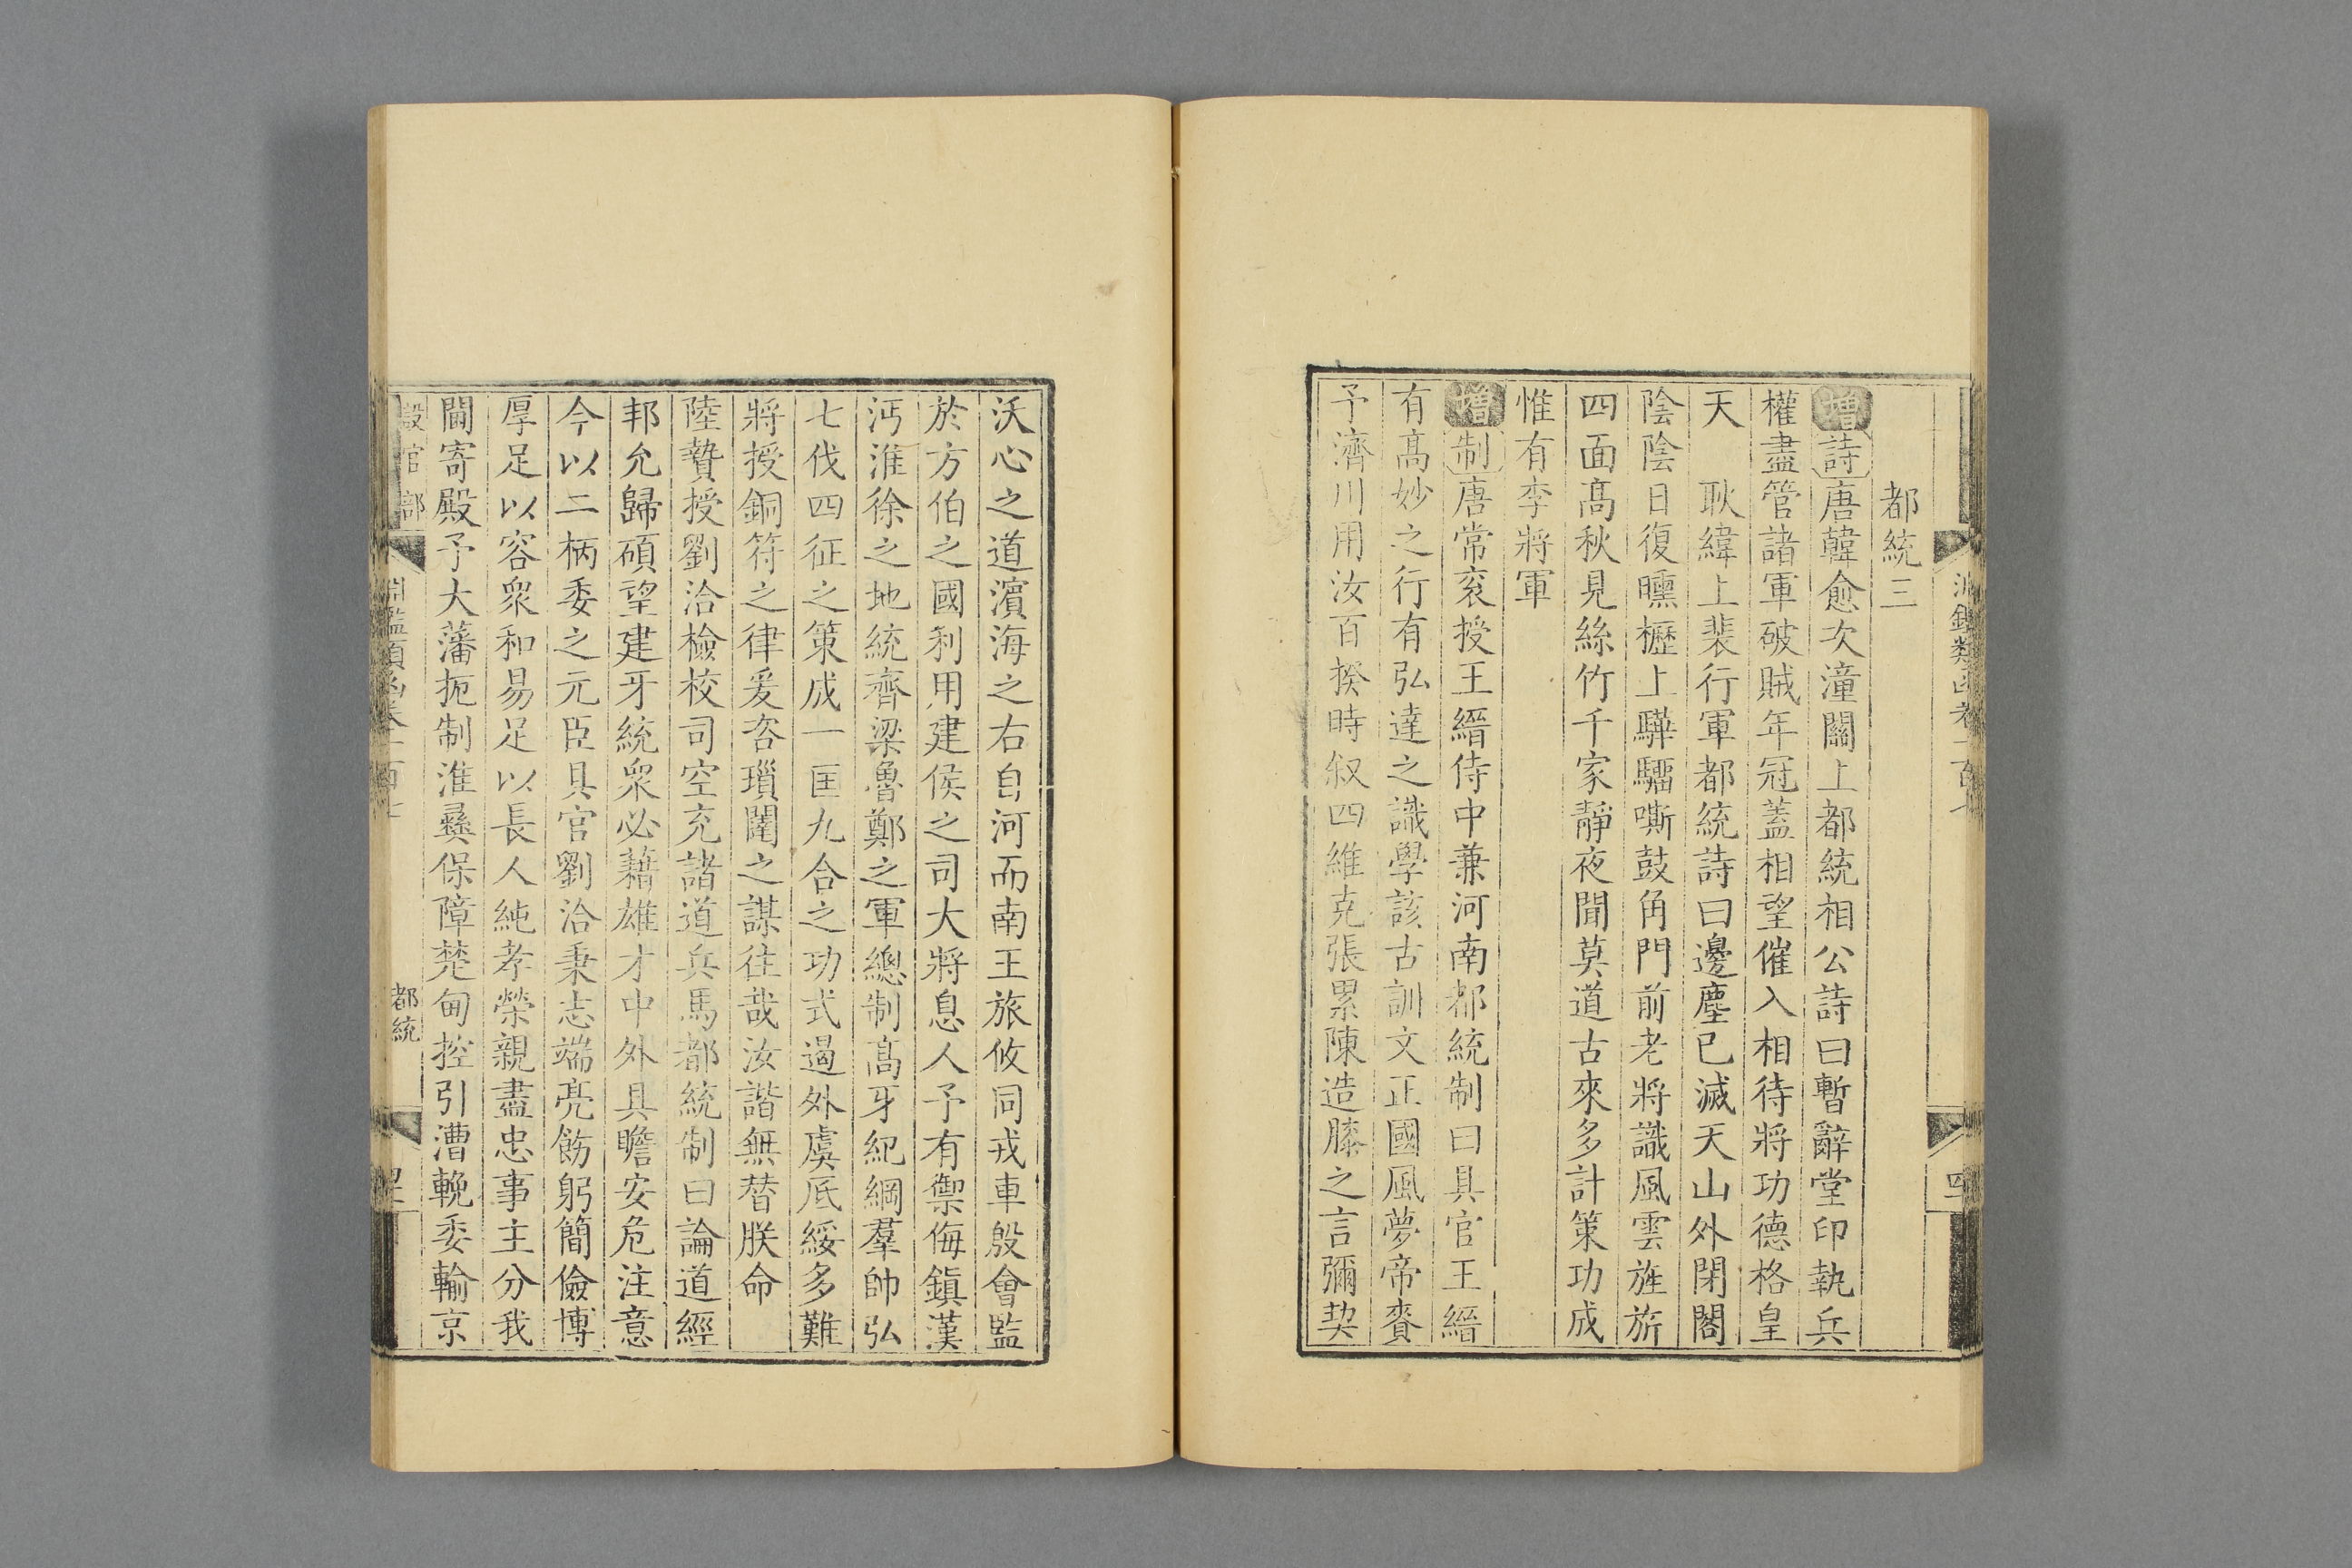 都統三
增詩唐韓愈次潼關上都統相公詩曰暫辭堂印執兵
權盡管諸軍破賊年冠蓋相望催入相待將功德格皇
天　耿緯上裴行軍都統詩曰邊塵已滅天山外閉閣
陰陰日復曛櫪上驊騮嘶鼓角門前老將識風雲旌旂
四面高秋見絲竹千家靜夜聞莫道古來多計策功成
惟有李將軍
增制唐常袞授王縉侍中兼河南都統制曰具官王縉
有高妙之行有弘達之識學該古訓文正國風夢帝賚
予濟川用汝百揆時叙四維克張累陳造膝之言彌契
沃心之道濵海之右自河而南王旅攸同戎車殷會監
於方伯之國利用建侯之司大將息人予有禦侮鎮漢
沔淮徐之地統齊梁魯鄭之軍總制高牙紀綱羣帥弘
七伐四征之策成一匡九合之功式遏外虞底綏多難
將授銅符之律爰咨瑣闥之謀往哉汝諧無替朕命
陸贄授劉洽檢校司空充諸道兵馬都統制曰論道經
邦允歸碩望建牙統衆必藉雄才中外具瞻安危注意
今以二柄委之元臣具官劉洽秉志端亮飭躬簡儉博
厚足以容衆和易足以長人純孝榮親盡忠事主分我
閫寄殿予大藩扼制淮彞保障楚甸控引漕輓委輸京
設官部
淵鑑類函卷一百七
都統